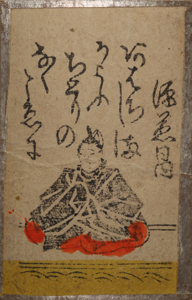 源兼昌
あはち嶋
かよふ
ちとりの
なくこゑに